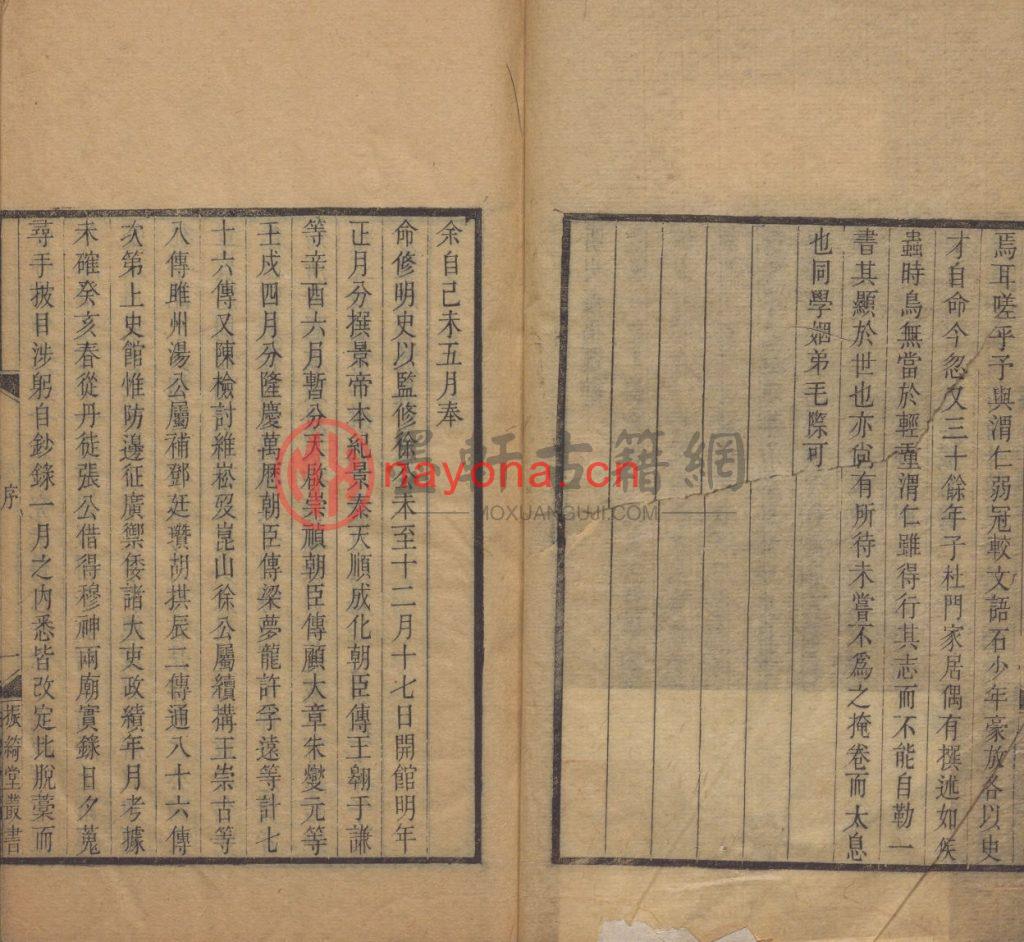 焉耳嗟乎予與渭仁弱冠較文語石少年豪放各以史
才自命今忽又三十餘年子杜門家居偶有撰述如候
蟲時鳥無當於輕重渭仁雖得行其志而不能自勒一
書其顯於世也亦尙有所待未嘗不爲之掩卷而太息
也同學姻弟毛際可
余自己未五月奉
命修明史以監修徐公未至十二月十七日開館明年
正月分撰景帝本紀景泰天順成化朝臣傳王翱于謙
等辛酉六月暫分天啟崇禎朝臣傳顧大章朱燮元等
壬戌四月分隆慶萬歷朝臣傳梁夢龍許孚遠等計七
十六傳又陳檢討維崧歿崑山徐公屬續搆王崇古等
八傳雎州湯公屬補鄧廷瓚胡拱辰二傳通八十六傳
次第上史館惟防邊征廣禦倭諸大吏政績年月考據
未確癸亥春從丹徒張公借得穆神兩廟實錄日夕蒐
尋手披目涉躬自鈔錄一月之內悉皆改定比脫藁而
序
一
振綺堂叢書
墨軒古籍網
nayona.cn
MOXUANGUJI.COM